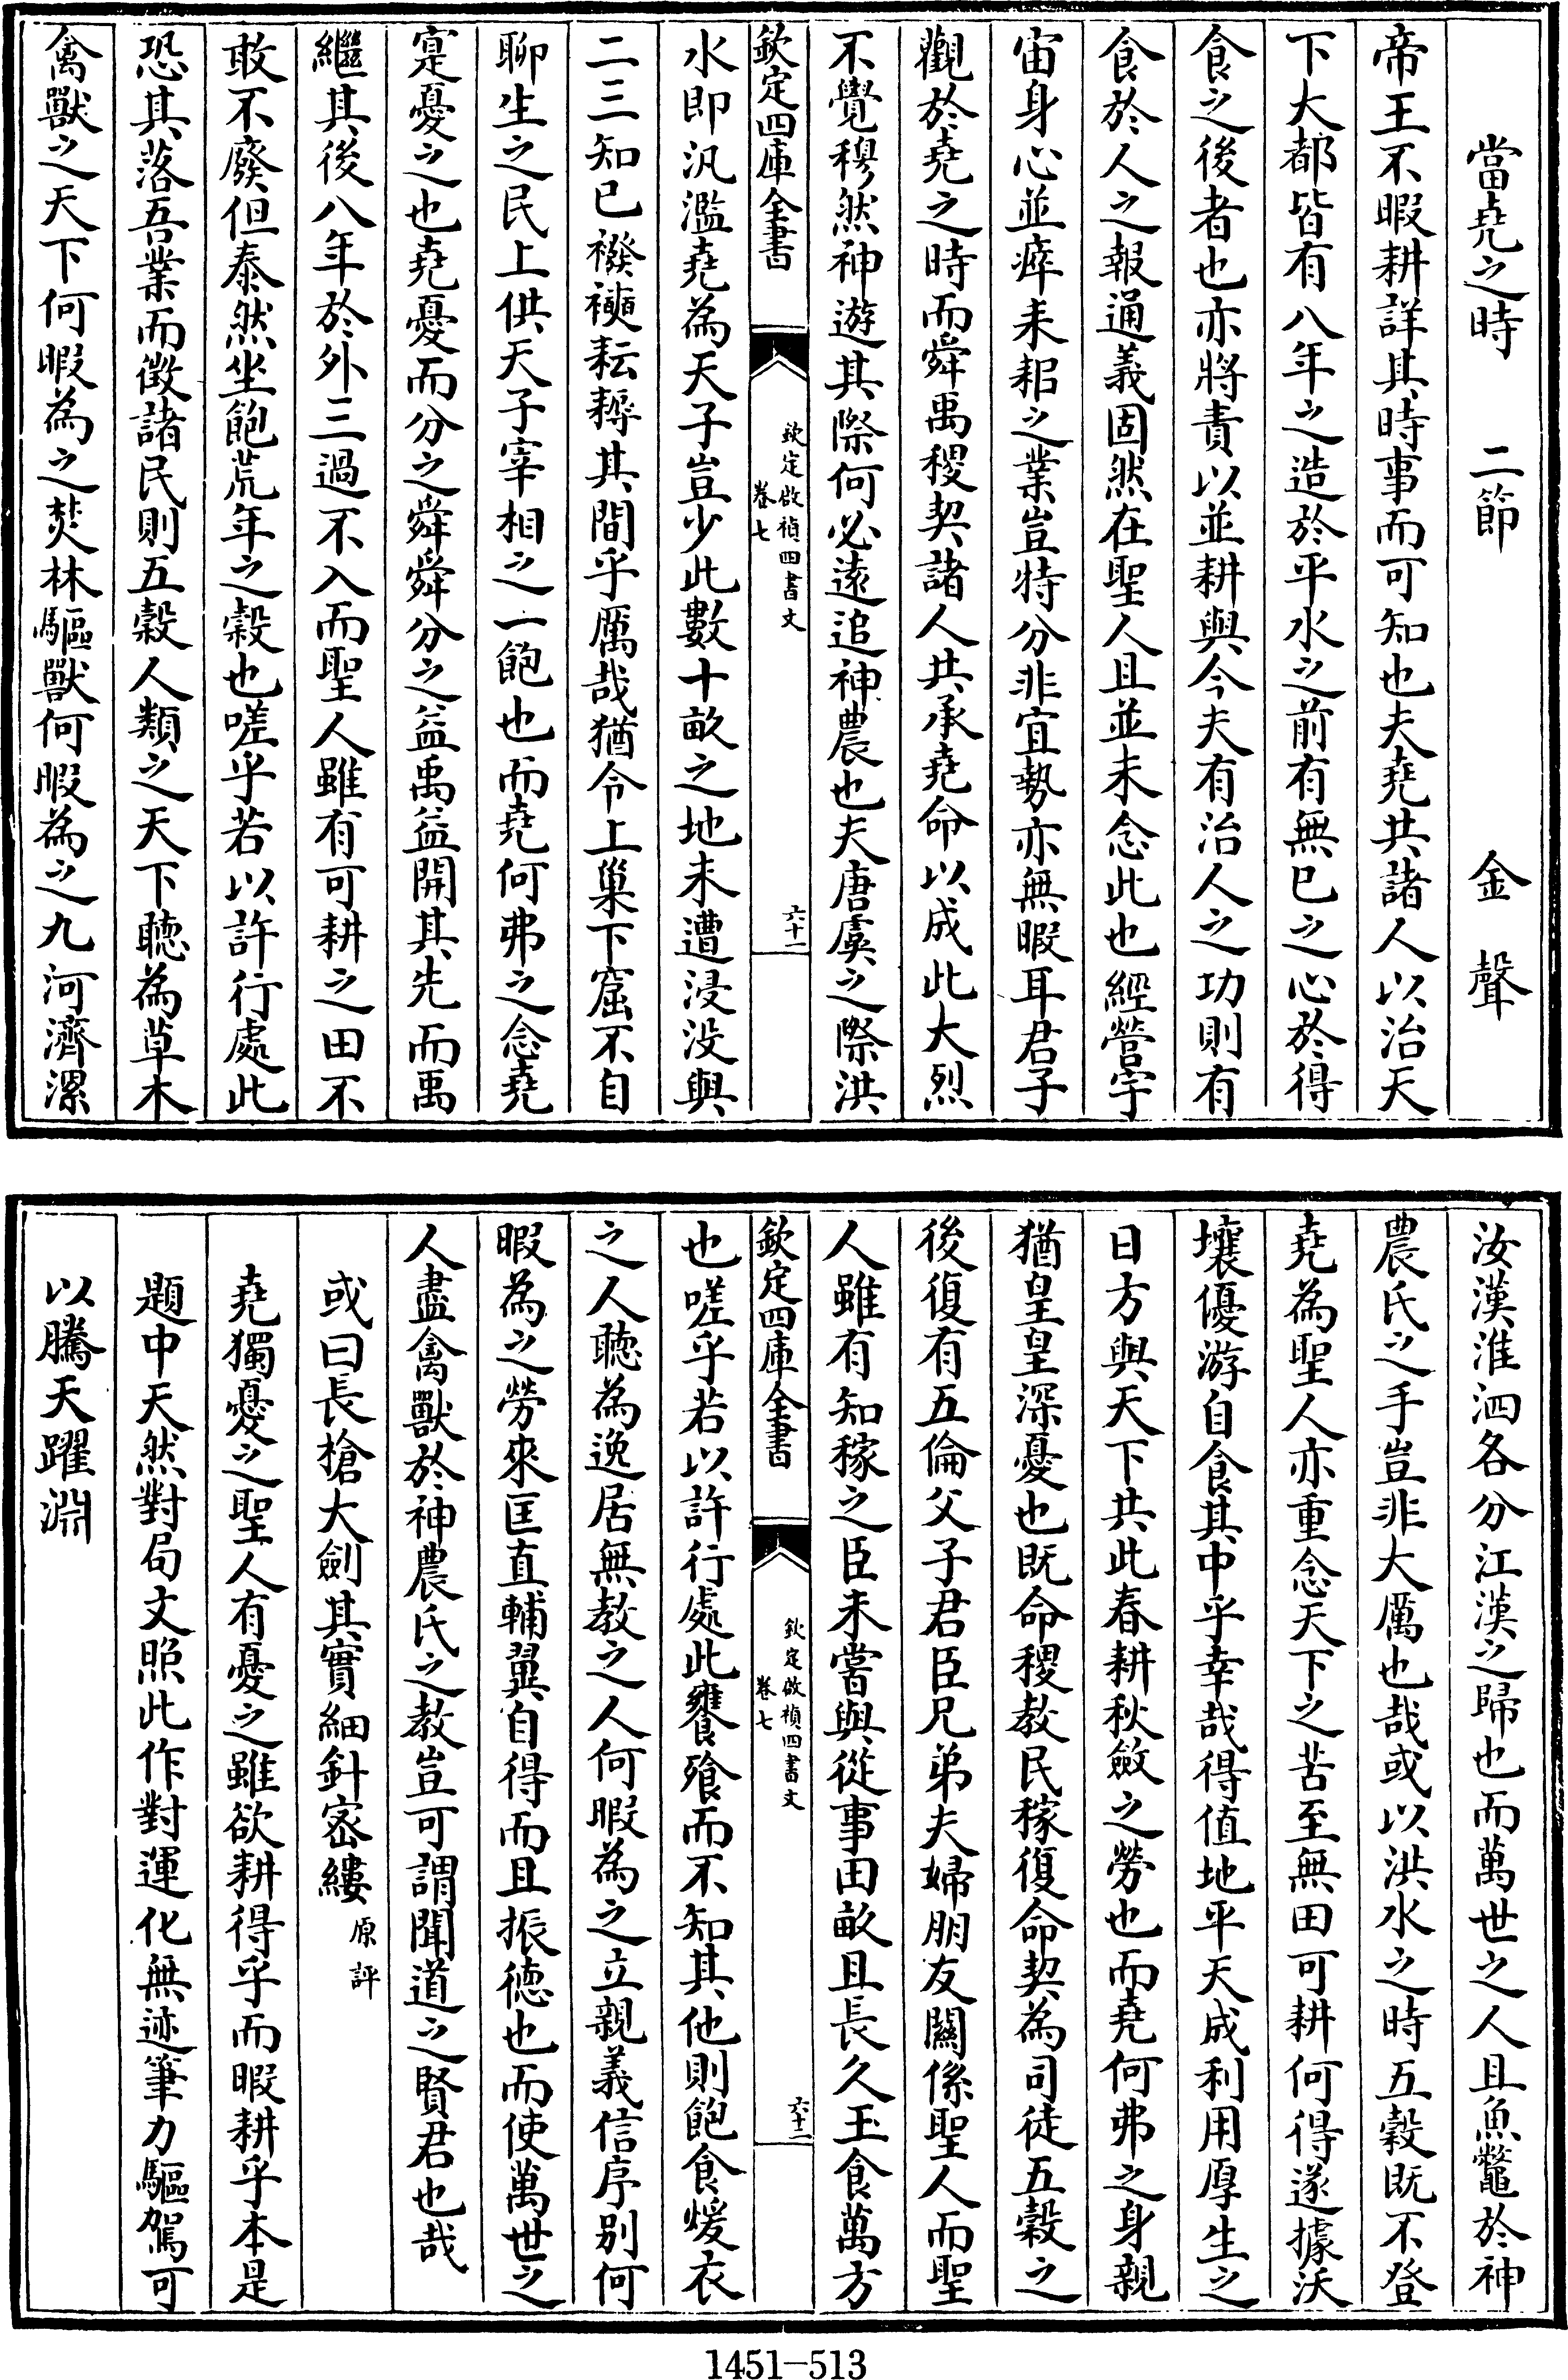 當堯之時　二節　金聲
帝王不暇耕詳其時事而可知也夫堯共諸人以治天
下大都皆有八年之造於平水之前有無已之心於得
食之後者也亦將責以並耕與今夫有治人之功則有
食於人之報通義固然在聖人且並未念此也經營宇
宙身心並瘁耒耜之業豈特分非宜勢亦無暇耳君子
觀於堯之時而舜禹稷契諸人共承堯命以成此大烈
不覺穆然神遊其際何必遠追神農也夫唐虞之際洪
欽定四庫全書
欽定啟禎四書文
卷七
六十一
水即汎濫堯為天子豈少此數十畝之地未遭浸没與
二三知已襏襫耘耨其間乎厲哉猶令上巢下窟不自
聊生之民上供天子宰相之一飽也而堯何弗之念堯
寔憂之也堯憂而分之舜舜分之益禹益開其先而禹
繼其後八年於外三過不入而聖人雖有可耕之田不
敢不廢但泰然坐飽荒年之榖也嗟乎若以許行處此
恐其落吾業而徵諸民則五榖人類之天下聽為草木
禽獸之天下何暇為之焚林驅獸何暇為之九河濟漯
汝漢淮泗各分江漢之歸也而萬世之人且魚鼈於神
農氏之手豈非大厲也哉或以洪水之時五榖既不登
堯為聖人亦重念天下之苦至無田可耕何得遂據沃
壤優游自食其中乎幸哉得值地平天成利用厚生之
日方與天下共此春耕秋斂之勞也而堯何弗之身親
猶皇皇深憂也既命稷教民稼復命契為司徒五榖之
後復有五倫父子君臣兄弟夫婦朋友關係聖人而聖
人雖有知稼之臣未嘗與從事田畝且長久玉食萬方
欽定四庫全書
欽定啟禎四書文
卷七
六十二
也嗟乎若以許行處此饔飱而不知其他則飽食煖衣
之人聽為逸居無教之人何暇為之立親義信序别何
暇為之勞來匡直輔翼自得而且振德也而使萬世之
人盡禽獸於神農氏之教豈可謂聞道之賢君也哉
或曰長槍大劍其實細針密縷原評
堯獨憂之聖人有憂之雖欲耕得乎而暇耕乎本是
題中天然對局文照此作對運化無迹筆力驅駕可
以騰天躍淵
1451—513